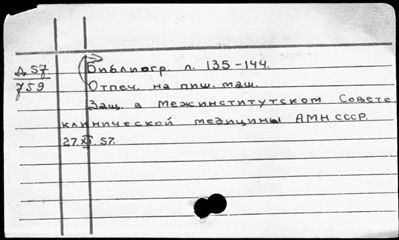 Д 57
759
Библиогр. л. 135-144.
Отпеч. на пиш. маш.
Защ. в Межинститутском Совете
клинической медицины АМН СССР.
27.XI.57.